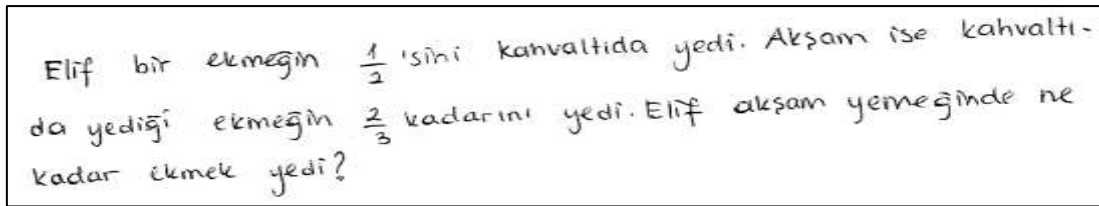 Elif bir ekmeğin 1/2 'sini kahvaltıda yedi. Akşam ise kahvaltı-
da yediği ekmeğin 2/3 kadarını yedi. Elif akşam yemeğinde ne
kadar ekmek yedi?